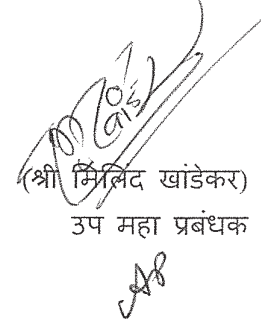 (श्री मिलिंद खांडेकर)
उप महा प्रबंधक